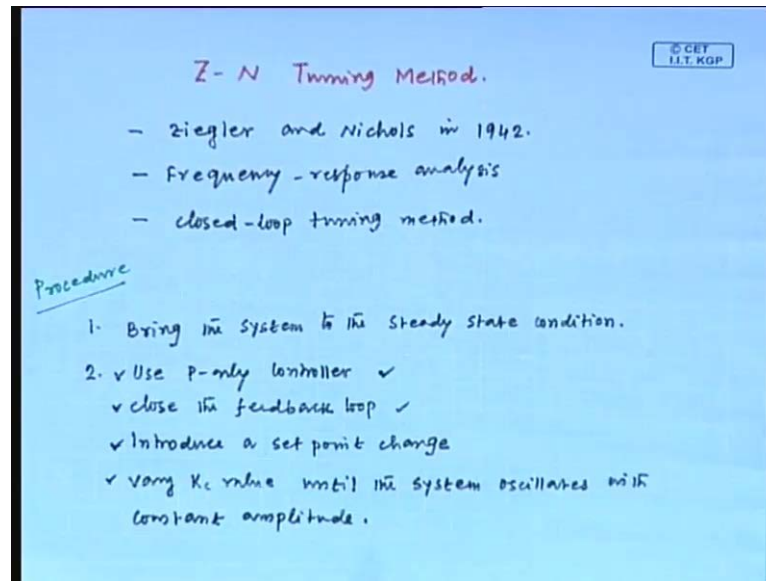 © CET
I.I.T. KGP
Z-N Tunning Method.
- Ziegler and Nichols in 1942.
- Frequency-response analysis
- closed-loop tunning method.
Procedure
1. Bring the system to the steady state condition.
2. ✓ Use P-only controller ✓
✓ close the feedback loop ✓
✓ Introduce a set point change
✓ vary Kc value until the system oscillates with
constant amplitude.